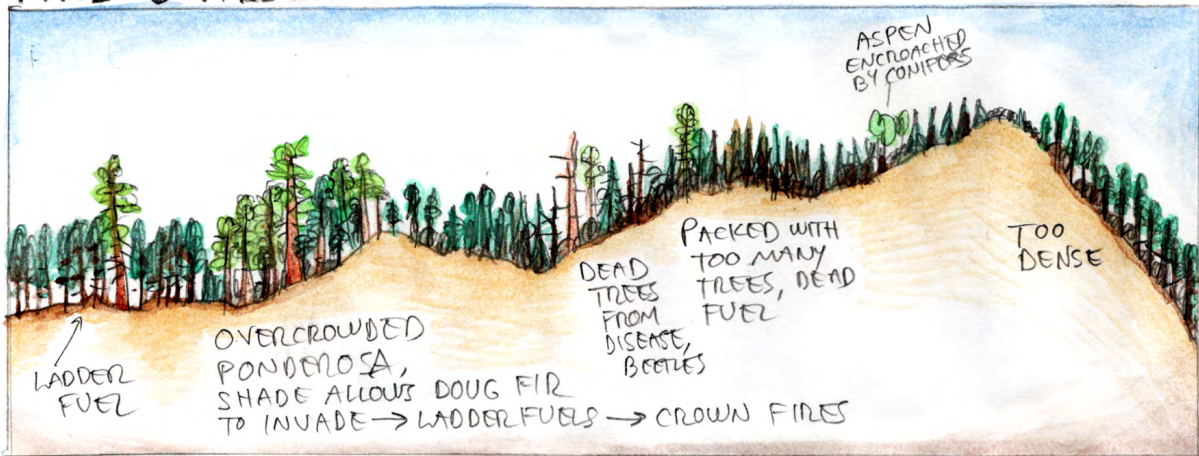 ASPEN
ENCROACHED
BY CONIFERS
LADDER
FUEL
OVERCROWDED
PONDEROSA,
SHADE ALLOWS DOUG FIR
TO INVADE → LADDER FUELS → CROWN FIRES
DEAD
TREES
FROM
DISEASE,
BEETLES
PACKED WITH
TOO MANY
TREES, DEAD
FUEL
TOO
DENSE